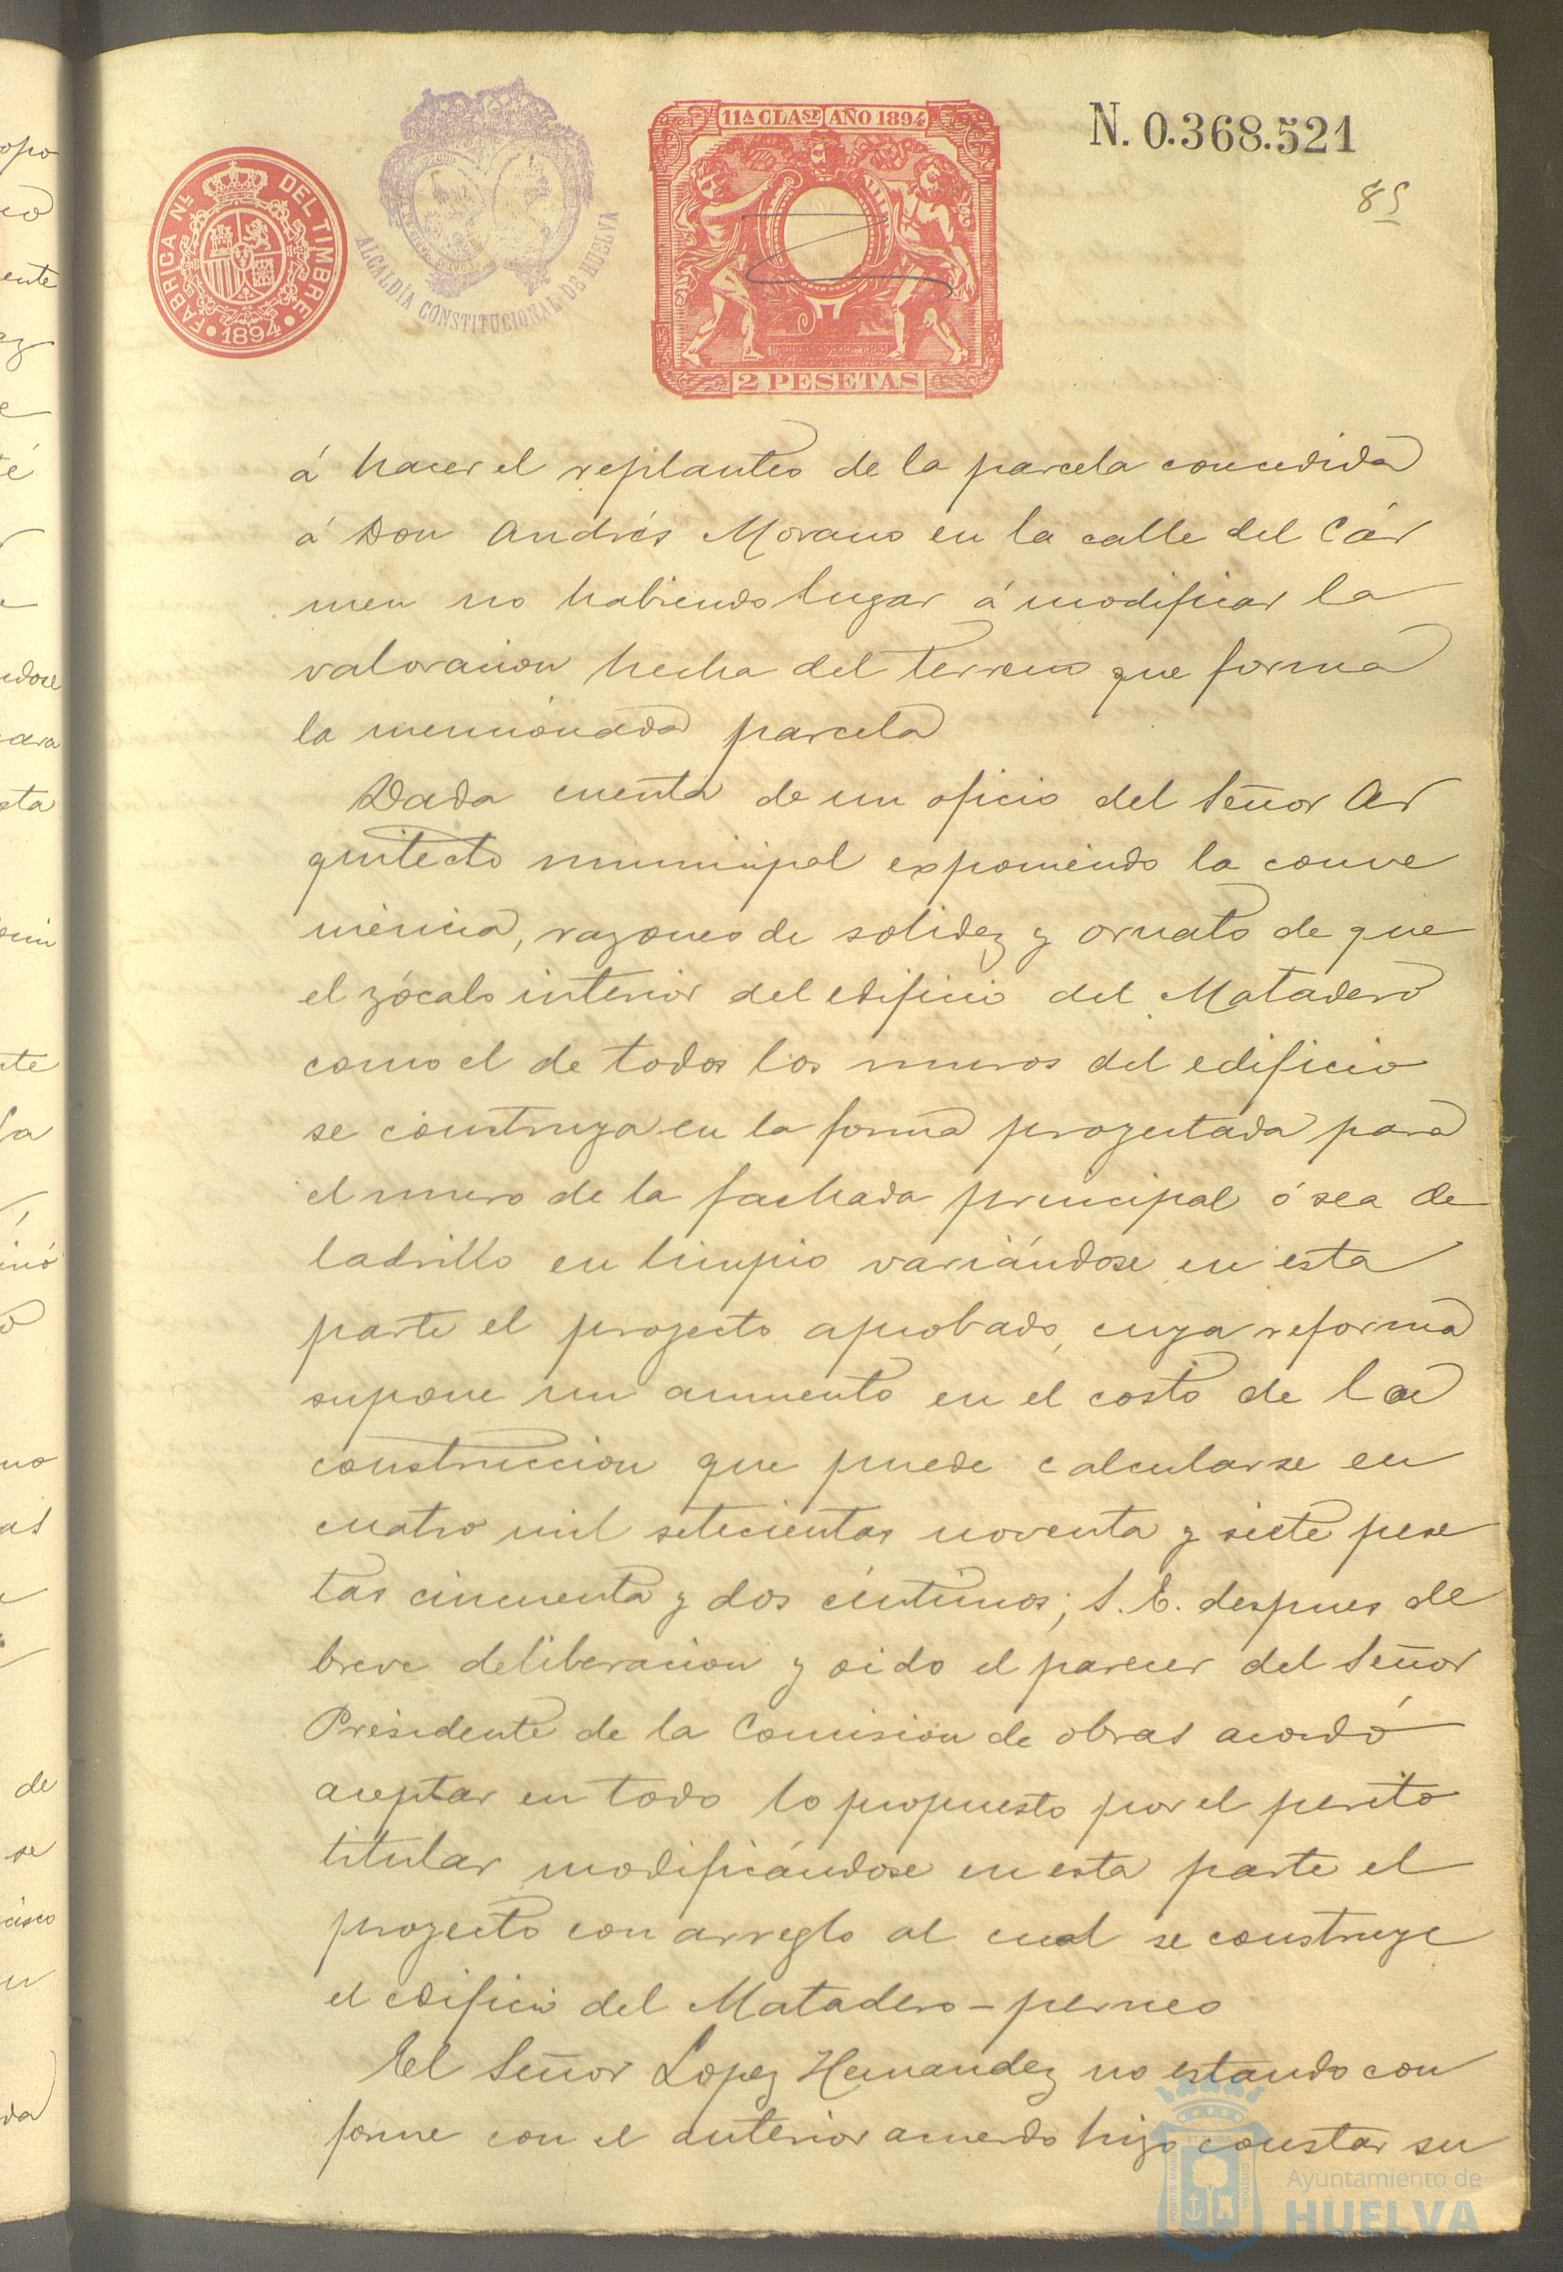 11ª CLASE AÑO 1894
N. 0.368.521
85
FABRICA NL. DEL TIMBRE
1894
ALCALDÍA CONSTITUCIONAL DE HUELVA
2 PESETAS
á hacer el replanteo de la parcela concedida
á Don Andrés Morano en la calle del Cár
men no habiendo lugar á modificar la
valoracion hecha del terreno que forma
la mencionada parcela
Dada cuenta de un oficio del Señor Ar
quitecto municipal exponiendo la conve
niencia, razones de solidez y ornato de que
el zócalo interior del edificio del Matadero
como el de todos los muros del edificio
se construya en la forma proyectada para
el muro de la fachada principal ó sea de
ladrillo en limpio variándose en esta
parte el proyecto aprobado, cuya reforma
supone un aumento en el costo de la
construccion que puede calcularse en
cuatro mil setecientas noventa y siete pese
tas cincuenta y dos céntimos; S. E. despues de
breve deliberacion y oido el parecer del Señor
Presidente de la Comision de obras acordó
aceptar en todo lo propuesto por el perito
titular modificándose en esta parte el
proyecto con arreglo al cual se construye
el edificio del Matadero-perneo
El Señor Lopez Hernandez no estando con
forme con el anterior acuerdo hizo constar su
Ayuntamiento de
HUELVA